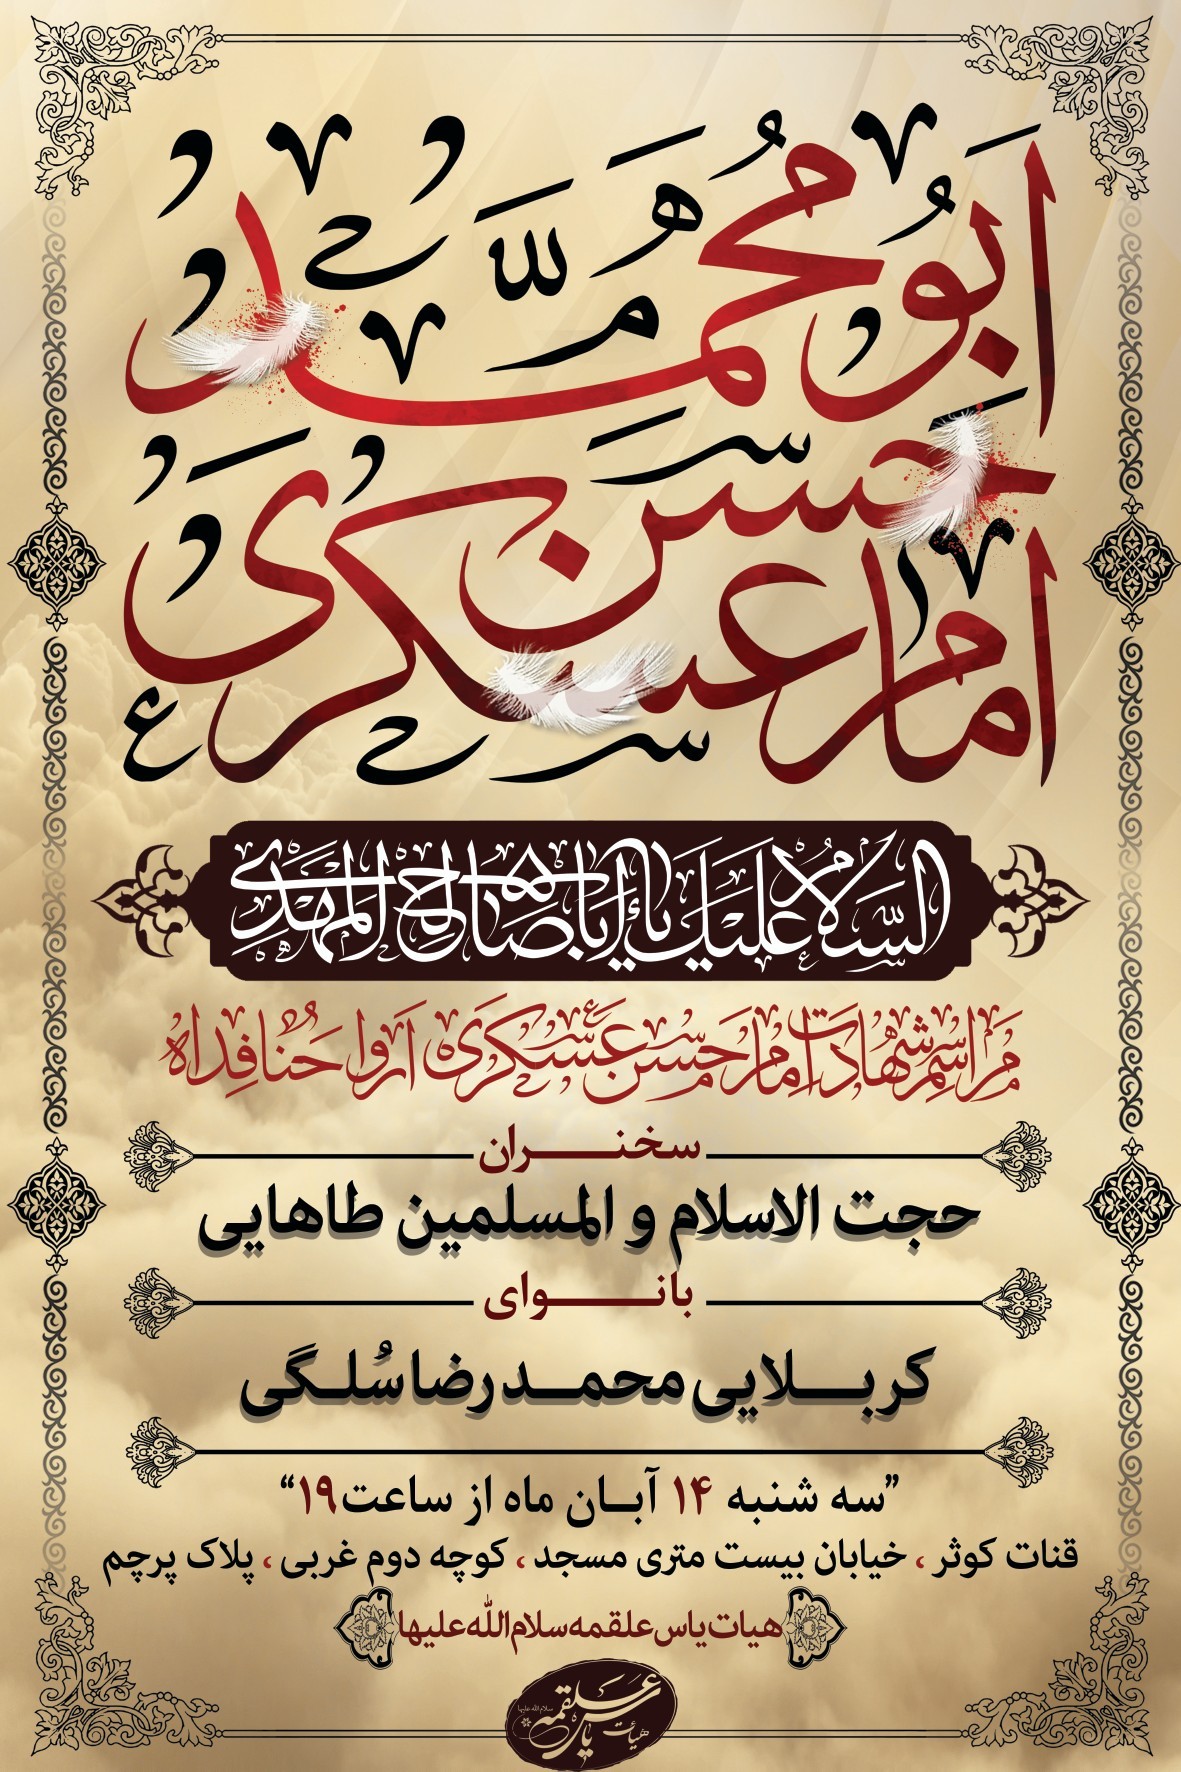 ابومحمد
امام حسن عسکری
السلام علیک یا اباصالح المهدی
مراسم شهادت امام حسن عسکری ارواحنا فداه
سخنران
حجت الاسلام و المسلمین طاهایی
بانوای
کربلایی محمدرضا سُلگی
”سه شنبه ۱۴ آبان ماه از ساعت۱۹“
قنات کوثر ، خیابان بیست متری مسجد ، کوچه دوم غربی ، پلاک پرچم
هیات یاس علقمه سلام الله علیها
هیئت یاس علقمه
سلام الله علیها